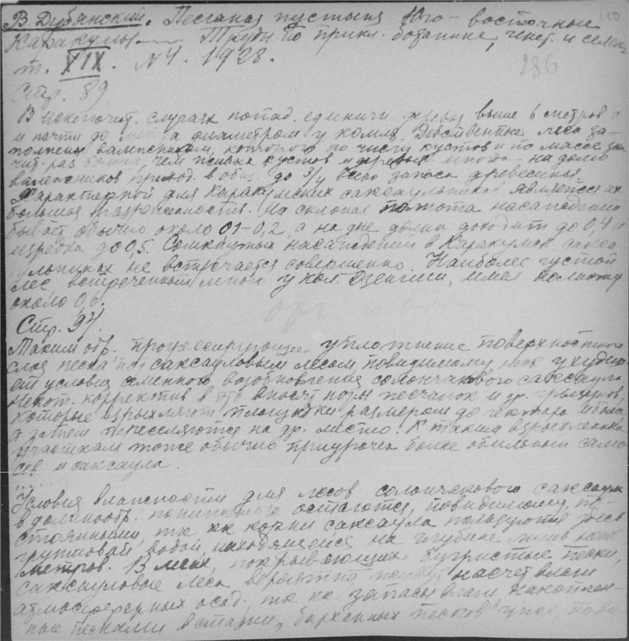 В. Дубянский. Песчаная пустыня Юго-восточные
Каракумы. Труды по прикл. ботанике, генет. и селек.
т. XIX. № 4. 1928.
286
Стр. 89.
В исключит. случаях попад. единичн. деревья выше 6 метров
и почти до метра диаметром у комля. Девственные леса за-
полнены валежником, которого по числу кустов и по массе
раз больше, чем живых кустов и деревьев. иногда на долю
валежников приход. в общ. до 3/4 всего запаса древесины.
Характерной для Каракумских саксаульников является их
большая разреженность. На склонах полнота насаждения
бывает обычно около 0,1-0,2, а на дне долин доходит до 0,4 и
изредка до 0,5. Сомкнутых насаждений в Каракумск. сак-
ульниках не встречается совершенно. Наиболее густой
лес встреченный мною у кол. Дзенгли, имел полноту
около 0,6.
Стр. 94.
Таким обр. прогрессирующее уплотнение поверхностного
слоя песка под саксауловым лесом повидимому, ухудша-
ет условия семенного возобновления солончакового саксаула.
Некот. корректив в это вносят норы песчанок и др. грызунов,
которые взрыхляют площадки размером до гектара
а затем переселяются на др. место. К таким взрыхленным
участкам тоже обычно приурочен более обильный само-
сев и саксаула.
Условия влажности для лесов солончакового саксаула
в долинообр. понижениях остаются, повидимому, по-
стоянными, тк кк корни саксаула пользуются здесь
грунтовой водой, находящейся на глубине
метров. В лесах, покрывающих бугристые пески
саксауловые леса вероятно насчет влаги
атмосферных осад. тк кк запасы влаги накоплен-
ные песками в стадии барханных песков